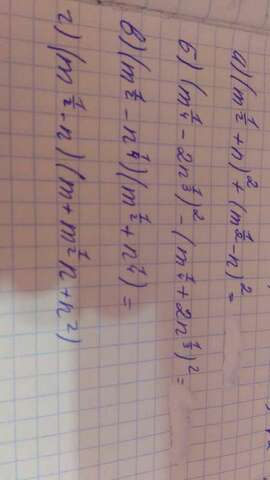 а) (m^{1/2} + n)^2 + (m^{1/2} - n)^2 =
б) (m^{1/4} - 2n^{1/3})^2 - (m^{1/4} + 2n^{1/3})^2 =
в) (m^{1/2} - n^{1/4})(m^{1/2} + n^{1/4}) =
г) (m^{1/2} - n)(m + m^{1/2}n + n^2)